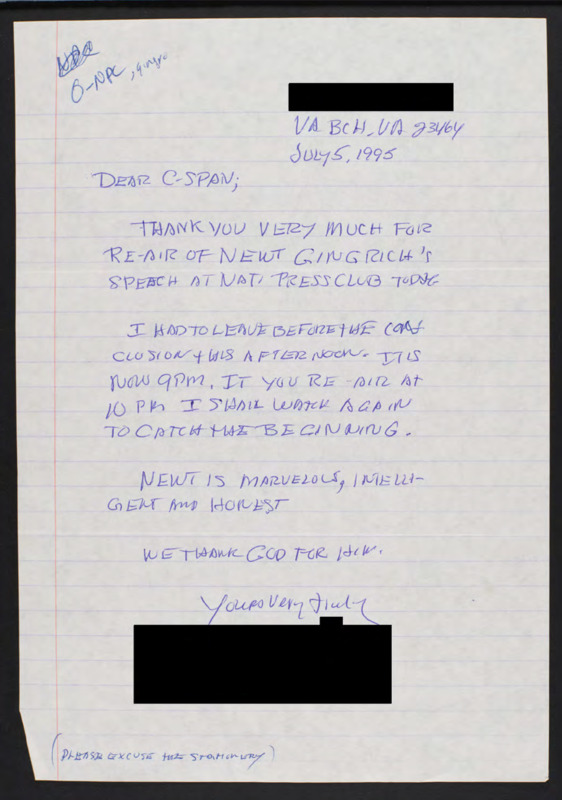 G-NPC, gingr
VA BCH, VA 23464
JULY 5, 1995
DEAR C-SPAN;
THANK YOU VERY MUCH FOR
RE-AIR OF NEWT GINGRICH'S
SPEECH AT NATI PRESS CLUB TODAY
I HAD TO LEAVE BEFORE THE CON
CLUSION THIS AFTERNOON. IT IS
NOW 9PM. IF YOU RE-AIR AT
10 PM I SHALL WATCH AGAIN
TO CATCH THE BEGINNING.
NEWT IS MARVELOUS, INTELLI-
GENT AND HONEST
WE THANK GOD FOR HIM.
Yours Very Truly
(PLEASE EXCUSE THE STATIONERY)